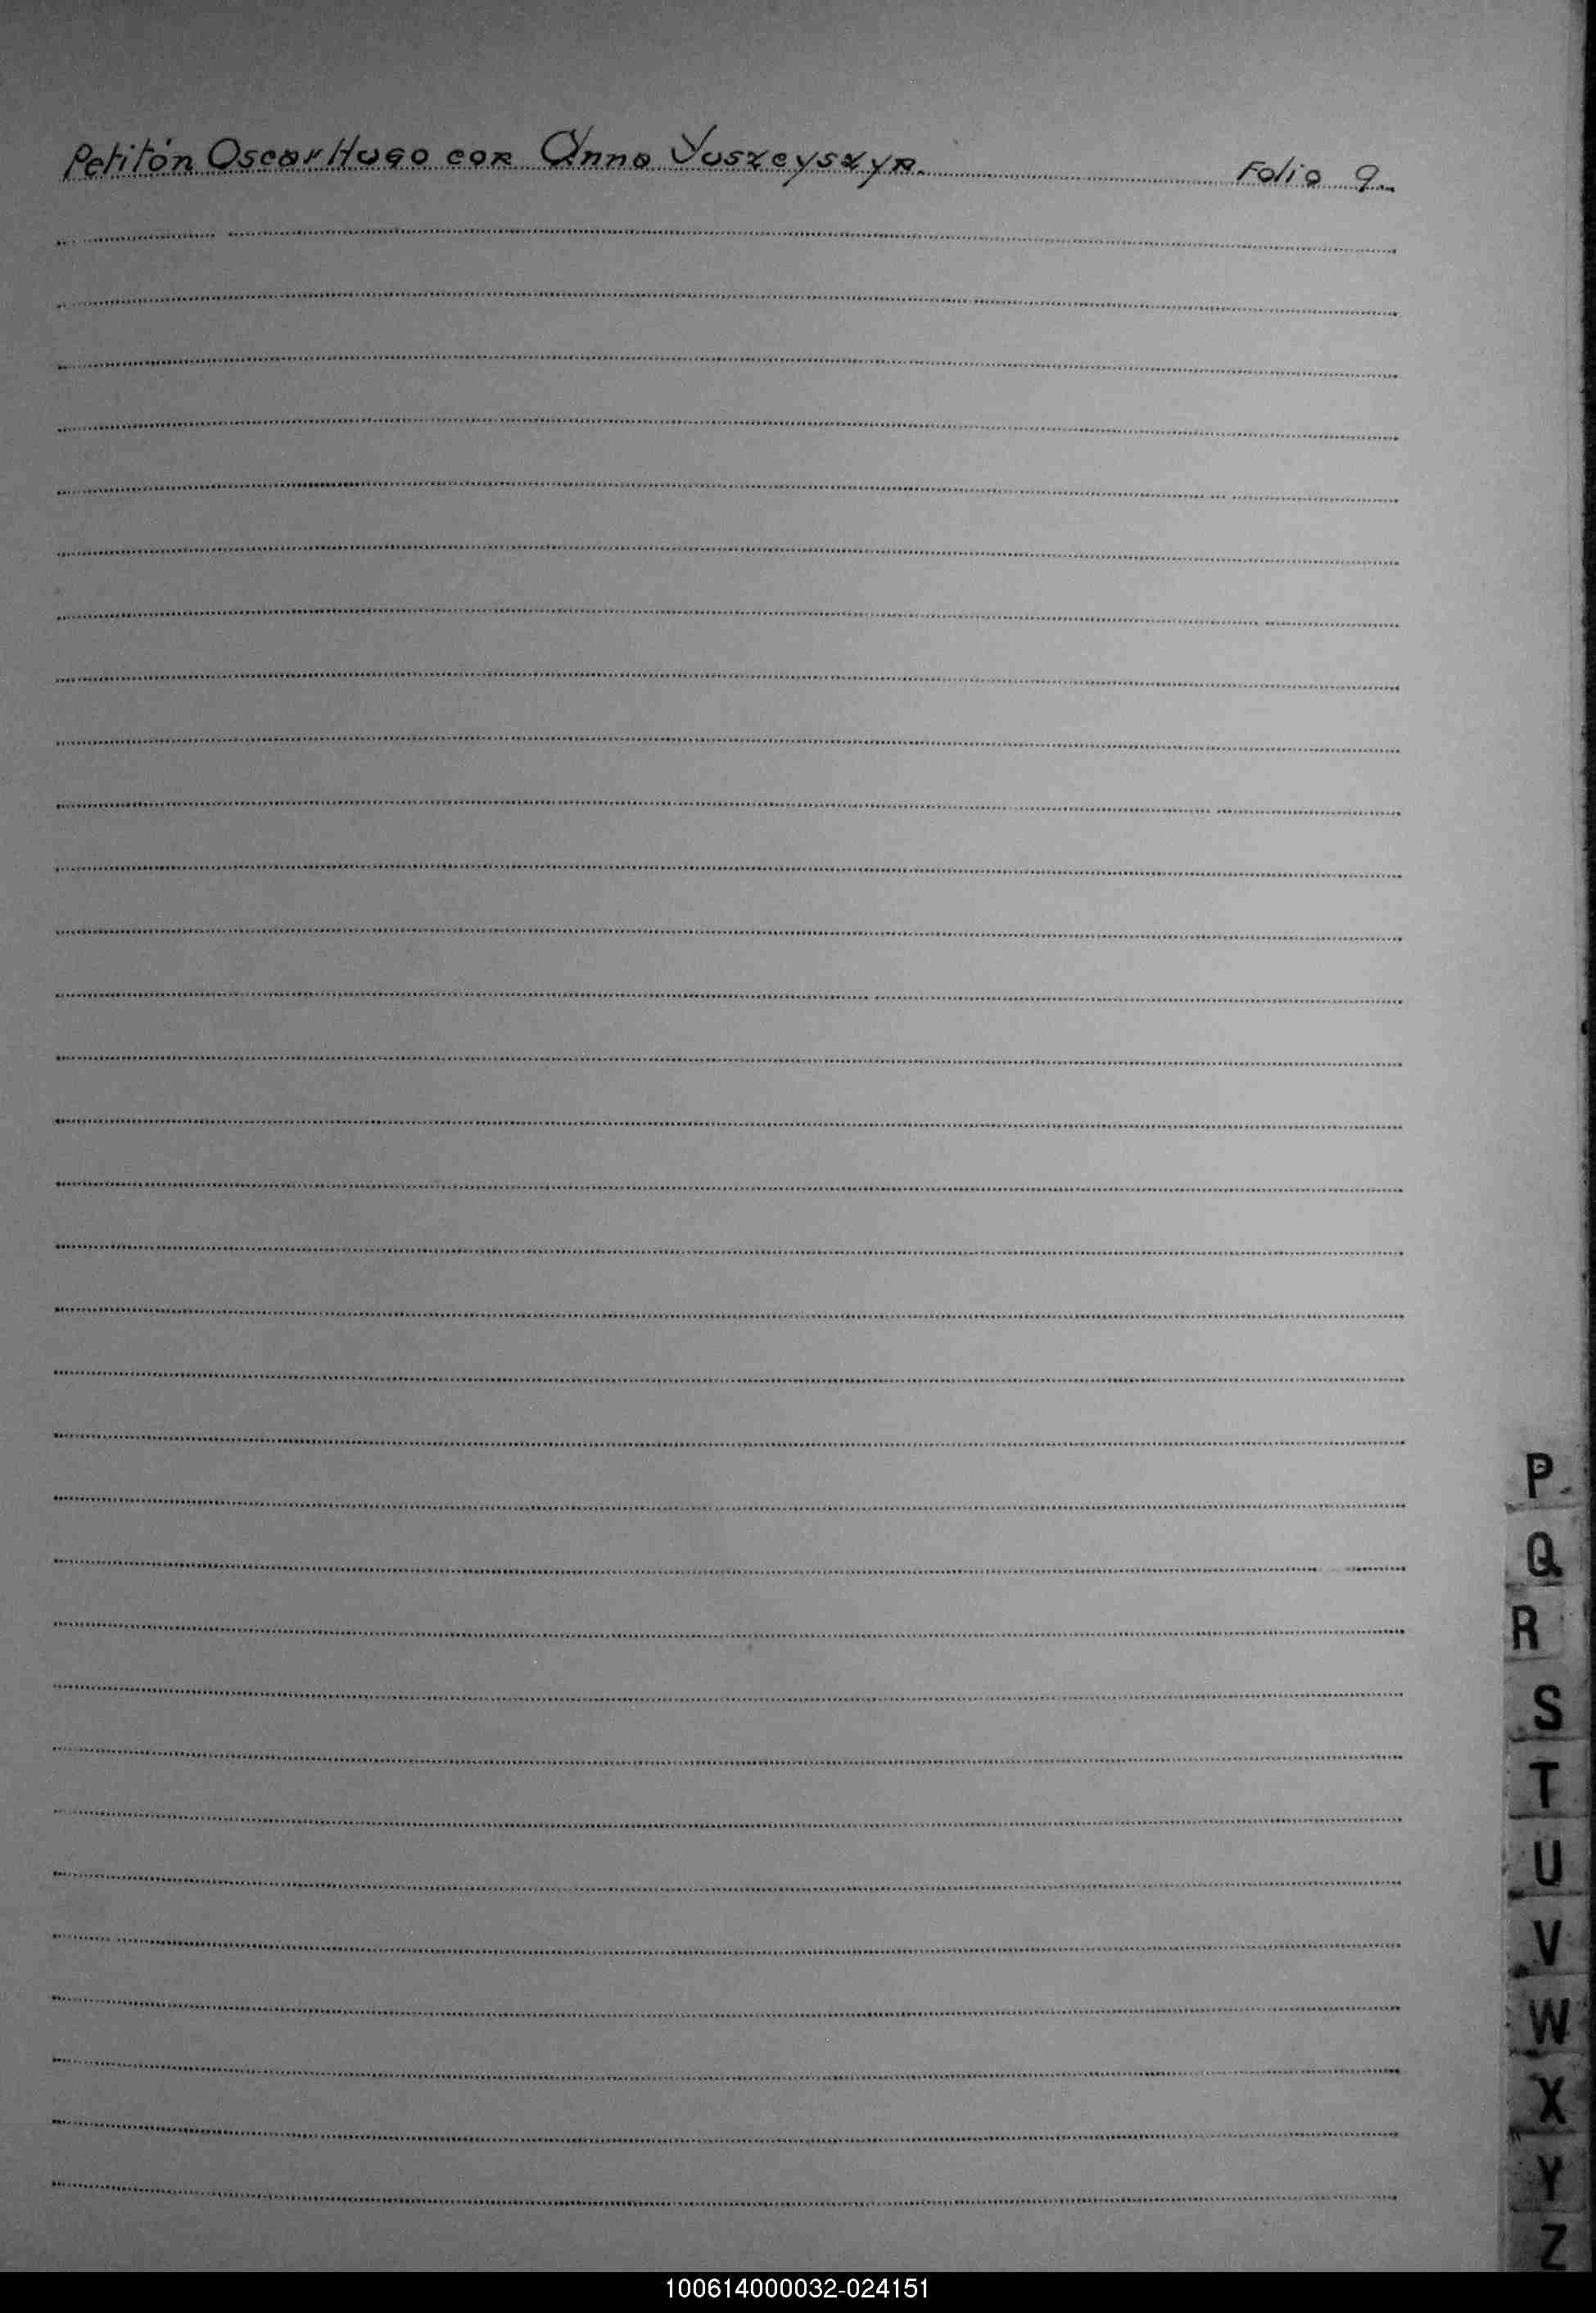 Petitón Oscar Hugo con Anna Yuszeyszyn. Folio 9.
P
Q
R
S
T
U
V
W
X
Y
Z
100614000032-024151